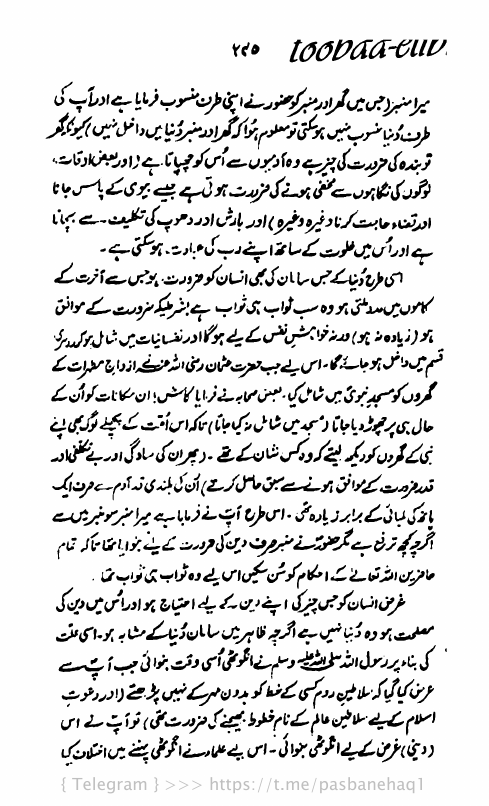 ۲۴۵ toobaa-elib.
میرا منبر (جس میں گھر اور منبر کو حضور نے اپنی طرف منسوب فرمایا ہے اور آپ کی
طرف دُنیا منسوب نہیں ہو سکتی تو معلوم ہوا کہ گھر اور منبر دُنیا میں داخل نہیں) کیونکہ گھر
تو بندہ کی ضرورت کی چیز ہے وہ آدمیوں سے اُس کو چھپاتا ہے (اور بعض اوقات،
لوگوں کی نگاہوں سے مخفی ہونے کی ضرورت ہوتی ہے جیسے بیوی کے پاس جانا
اور قضاء حاجت کرنا وغیرہ وغیرہ) اور بارش اور دھوپ کی تکلیف سے بچاتا
ہے اور اُس میں خلوت کے ساتھ اپنے رب کی عبادت ہو سکتی ہے۔
اسی طرح دُنیا کے جس سامان کی بھی انسان کو ضرورت ہو جس سے آخرت کے
کاموں میں مدد ملتی ہو وہ سب ثواب ہی ثواب ہے بشرطیکہ ضرورت کے موافق
ہو (زیادہ نہ ہو) ورنہ خواہش نفس کے لیے ہوگا اور نفسانیات میں شامل ہو کر دوسری
قسم میں داخل ہو جائے گا۔ اس لیے جب حضرت عثمان رضی اللہ عنہ نے ازواج مطہرات کے
گھروں کو مسجد نبوی میں شامل کیا۔ بعض صحابہ نے فرمایا کاش! ان مکانات کو اُن کے
حال ہی پر چھوڑ دیا جاتا (مسجد میں شامل نہ کیا جاتا) تاکہ اس اُمت کے پچھلے لوگ بھی اپنے
نبی کے گھروں کو دیکھ لیتے کہ وہ کس شان کے تھے۔ (پھر ان کی سادگی اور بے تکلفی اور
قدر ضرورت کے موافق ہونے سے سبق حاصل کرتے) اُن کی بلندی قد آدم سے صرف ایک
ہاتھ کی لمبائی کے برابر زیادہ تھی۔ اس طرح آپ نے فرمایا ہے میرا منبر سو منبر میں سے
اگرچہ کچھ ترفع ہے مگر حضور نے منبر صرف دین کی ضرورت کے لیے بنوایا تھا تاکہ تمام
حاضرین اللہ تعالےٰ کے احکام کو سُن سکیں اس لیے وہ ثواب ہی ثواب تھا۔
غرض انسان کو جس چیز کی اپنے دین کے لیے احتیاج ہو اور اُس میں دین کی
مصلحت ہو وہ دُنیا نہیں ہے اگرچہ ظاہر میں سامان دُنیا کے مشابہ ہو۔ اسی علت
کی بناء پر رسول اللہ صلی اللہ علیہ وسلم نے انگوٹھی اُسی وقت بنوائی جب آپ سے
عرض کیا گیا کہ سلاطین روم کسی کے خط کو بدون مہر کے نہیں پڑھتے (اور دعوتِ
اسلام کے لیے سلاطین عالم کے نام خطوط بھیجنے کی ضرورت تھی) تو آپ نے اس
(دینی) غرض کے لیے انگوٹھی بنوائی۔ اس لیے علماء نے انگوٹھی پہننے میں اختلاف کیا
{ Telegram } >>> https://t.me/pasbanehaq1